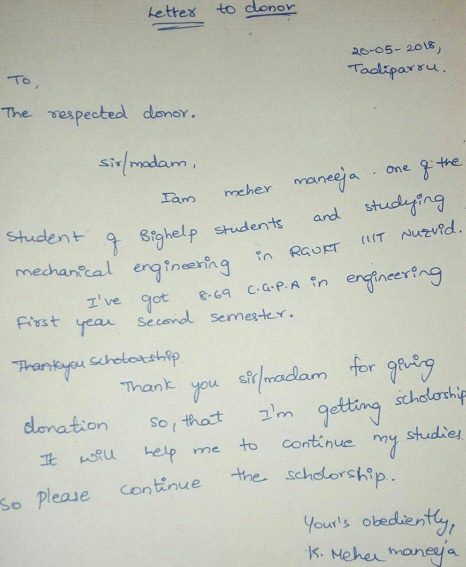 Letter to donor
20-05-2018,
Tadiparru.
To,
The respected donor.
sir/madam,
Iam meher maneeja. one of the
student of Bighelp students and studying
mechanical engineering in RGUKT IIIT Nuzvid.
I've got 8.69 C.G.P.A in engineering
First year second semester.
Thankyou Scholorship
Thank you sir/madam for giving
donation so, that I'm getting scholorship
It will help me to continue my studies.
So please continue the scholorship.
Your's obediently,
K. Meher maneeja